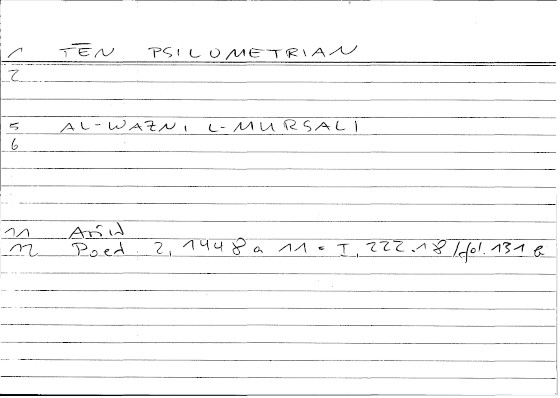 1 TĒN PSILOMETRIAN
2
5 AL-WAZNI L-MURSALI
6
11 Arist
12 Poet. 2, 1448 a 11 = I, 222.18/fol. 131 b